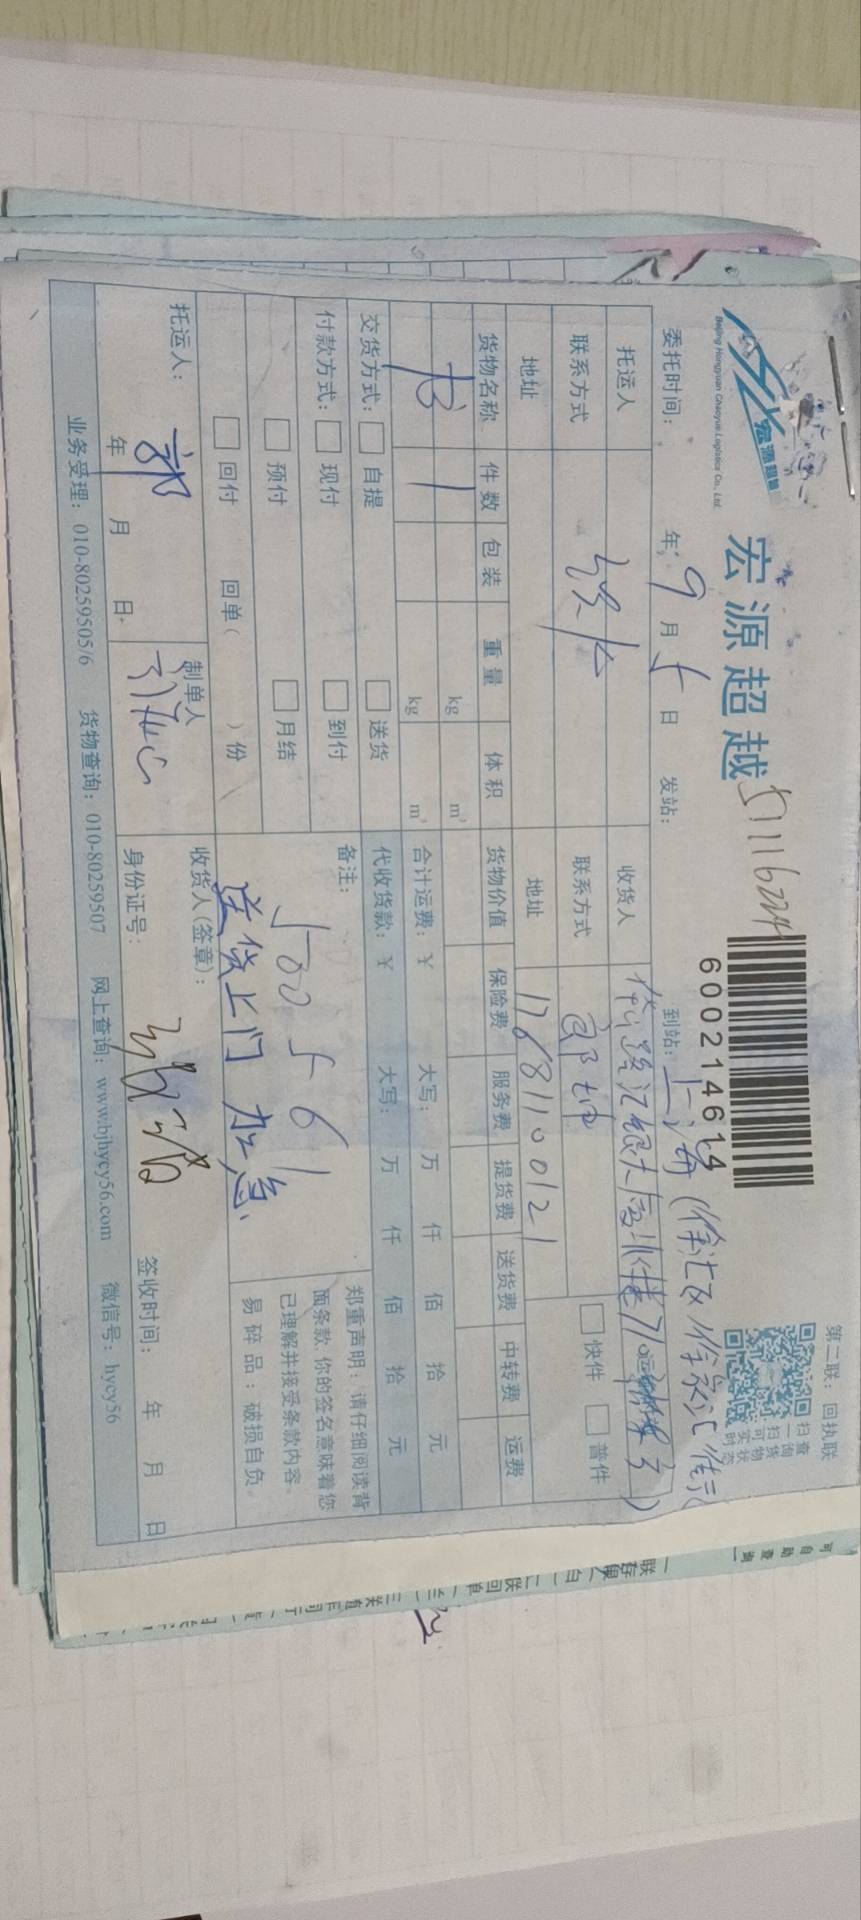 宏源超越
Beijing Hongyuan Chaoyue Logistics Co., Ltd.
宏源超越
57116224
600214614
第二联：回执联
扫一扫
查询货物
可实时状态
委托时间： 年 9 月 5 日 发站： 到站：上海（徐汇区
托运人 收货人 路汇银大厦北楼
联系方式 联系方式
□快件 □普件
地址 地址 17681100121
货物名称 件数 包装 重量 体积 货物价值 保险费 服务费 提货费 送货费 中转费 运费
1 kg m³
kg m³
合计运费：￥ 大写： 万 仟 佰 拾 元
交货方式：□自提 □送货 代收货款：￥ 大写： 万 仟 佰 拾 元
付款方式：□现付 □到付
□预付 □月结
□回付 回单（ ）份
备注：
50056
送货上门 加急
郑重声明：请仔细阅读背
面条款，你的签名意味着您
已理解并接受条款内容。
易碎品：破损自负。
托运人：郭
年 月 日
制单人
收货人(签章)：
身份证号：
签收时间： 年 月 日
业务受理：010-80259505/6 货物查询：010-80259507 网上查询：www.bjhycy56.com 微信号：hycy56